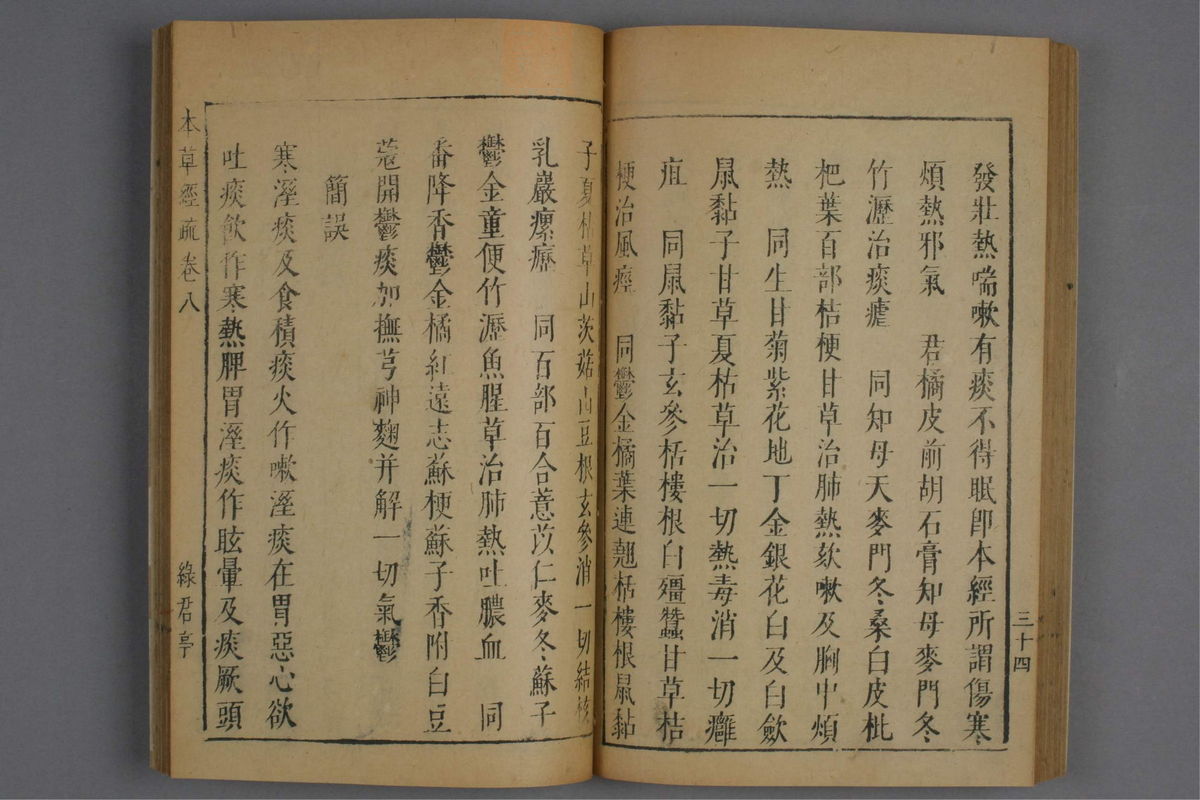 三十四
發壯熱喘嗽有痰不得眠卽本經所謂傷寒
煩熱邪氣　君橘皮前胡石膏知母麥門冬
竹瀝治痰瘧　同知母天麥門冬桑白皮枇
杷葉百部桔梗甘草治肺熱欬嗽及胸中煩
熱　同生甘菊紫花地丁金銀花白及白歛
鼠黏子甘草夏枯草治一切熱毒消一切癰
疽　同鼠黏子玄參栝樓根白殭蠶甘草桔
梗治風痙　同鬱金橘葉連翹栝樓根鼠黏
子夏枯草山茨菇山豆根玄參消一切結核
乳巖瘰癧　同百部百合薏苡仁麥冬蘇子
鬱金童便竹瀝魚腥草治肺熱吐膿血　同
番降香鬱金橘紅遠志蘇梗蘇子香附白豆
蔻開鬱痰加撫芎神麴并解一切氣鬱
簡誤
寒溼痰及食積痰火作嗽溼痰在胃惡心欲
吐痰飲作寒熱脾胃溼痰作眩暈及痰厥頭
本草經疏卷八　綠君亭